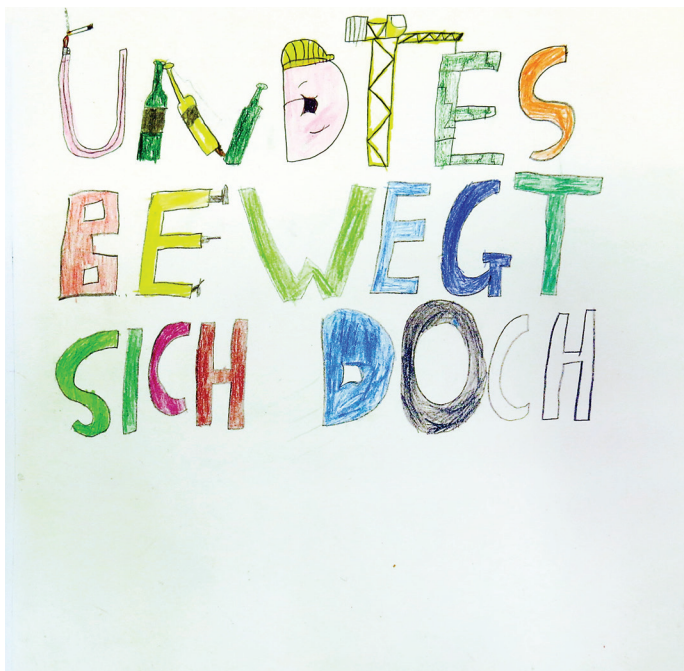 UNDTES
BEWEGT
SICH DOCH